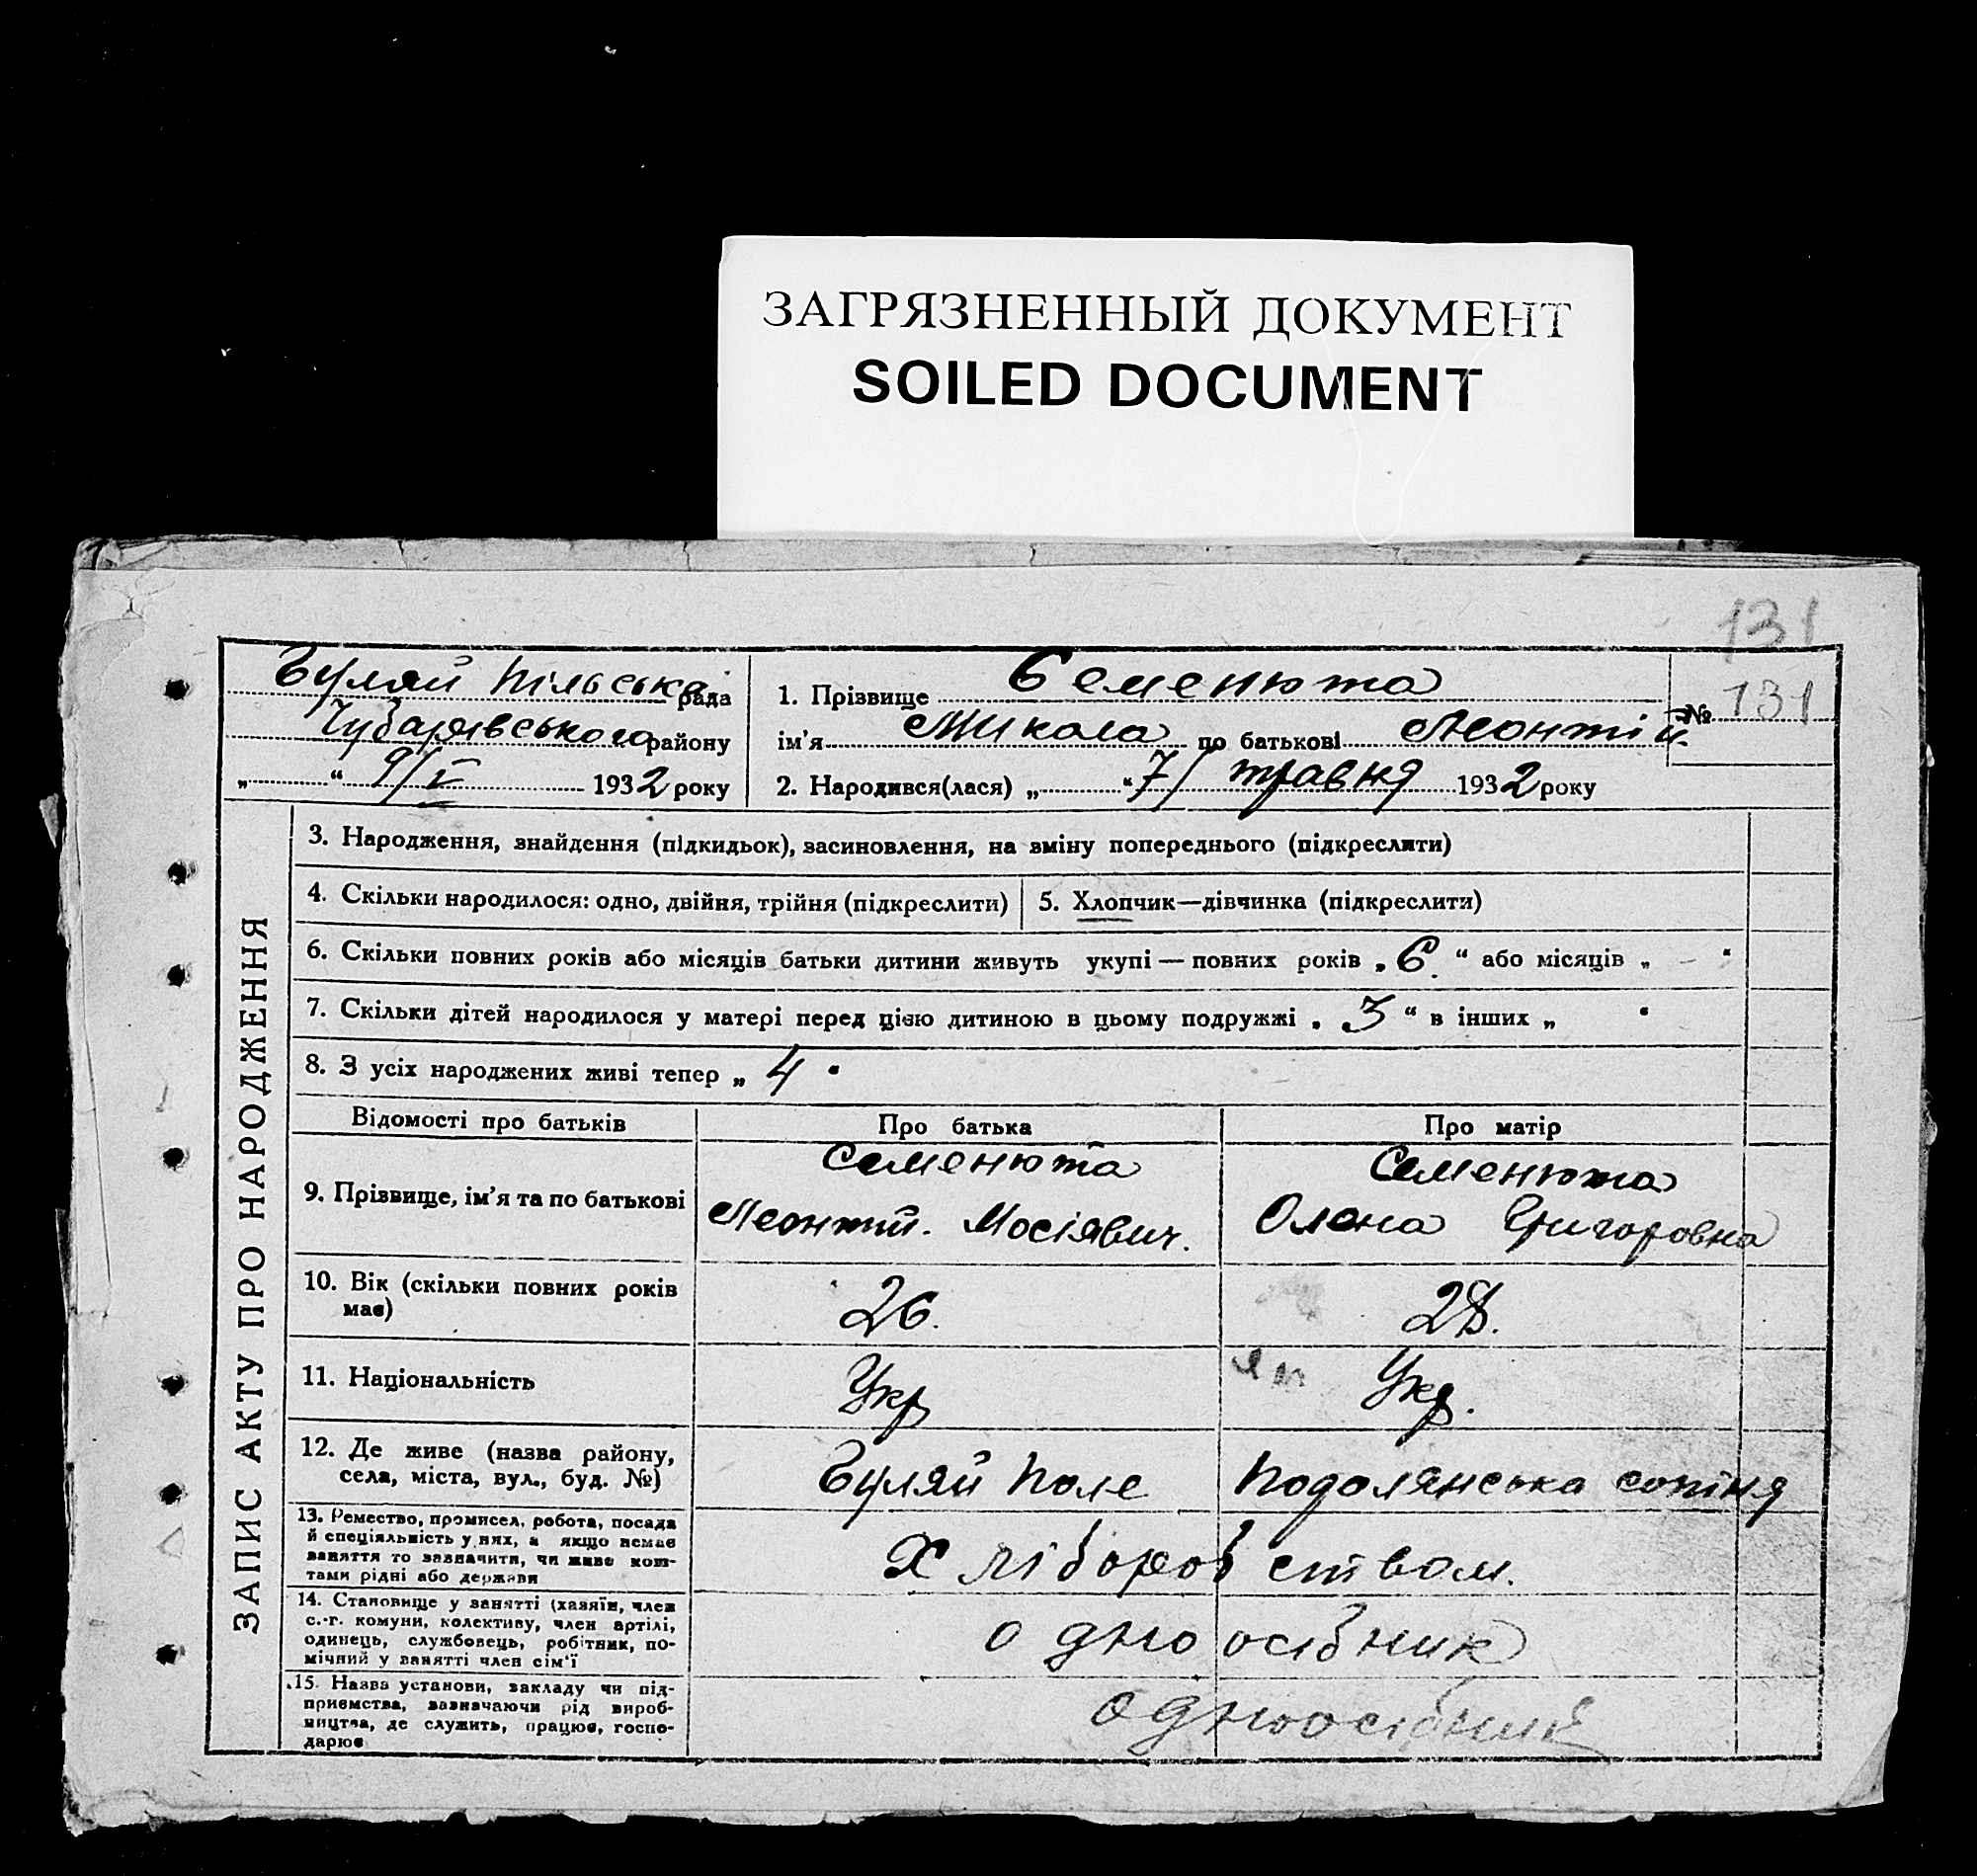 ЗАГРЯЗНЕННЫЙ ДОКУМЕНТ
SOILED DOCUMENT
131
Гуляй Пільська рада
Чубарівського району
„ “ 9/V 1932 року
1. Прізвище Семенюта
№ 131
ім'я Микола по батькові Леонтій.
2. Народився(лася) „ “ 7/ травня 1932 року
ЗАПИС АКТУ ПРО НАРОДЖЕННЯ
3. Народження, знайдення (підкидьок), засиновлення, на зміну попереднього (підкреслити)
4. Скільки народилося: одно, двійня, трійня (підкреслити)
5. Хлопчик—дівчинка (підкреслити)
6. Скільки повних років або місяців батьки дитини живуть укупі — повних років „ 6. “ або місяців „ — “
7. Скільки дітей народилося у матері перед цією дитиною в цьому подружжі „ 3 “ в інших „ “
8. З усіх народжених живі тепер „ 4 “
Відомості про батьків Про батька Про матір
9. Прізвище, ім'я та по батькові
Семенюта
Леонтій. Мосіявич.
Семенюта
Олена Григоровна
10. Вік (скільки повних років
має)
26.
28.
11. Національність
Укр
Укр.
12. Де живе (назва району,
села, міста, вул., буд. №)
Гуляй Поле
Подолянська сотня
13. Ремество, промисел, робота, посада
й спеціяльність у них, а якщо немає
заняття то зазначити, чи живе кош-
тами рідні або держави
Хліборобством.
14. Становище у занятті (хазяїн, член
с.-г. комуни, колективу, член артілі,
одинець, службовець, робітник, по-
мічний у занятті член сім'ї
одноосібник
15. Назва установи, закладу чи під-
приємства, зазначаючи рід вироб-
ництва, де служить, працює, госпо-
дарює
одноосібник